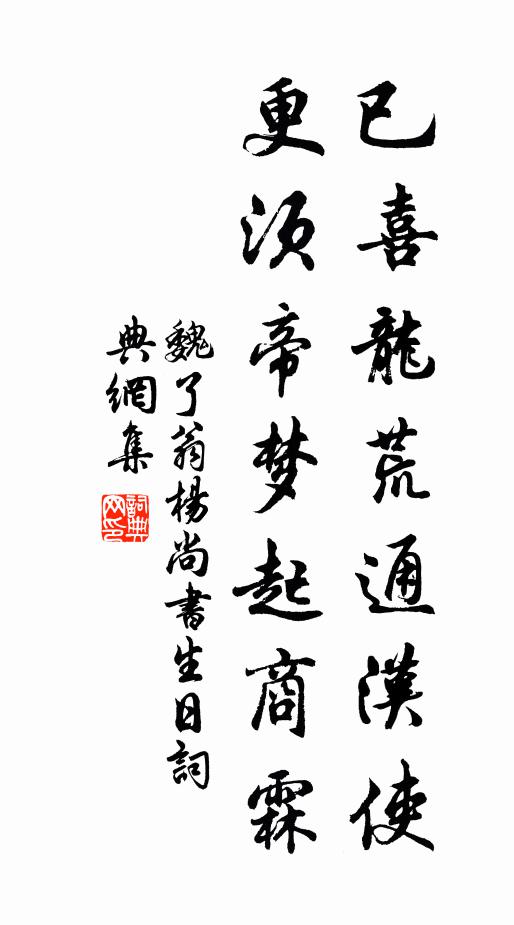 已喜龍荒通漢使
更須帝梦起商霖
魏了翁楊尚書生日詞
典網集
詞典網印